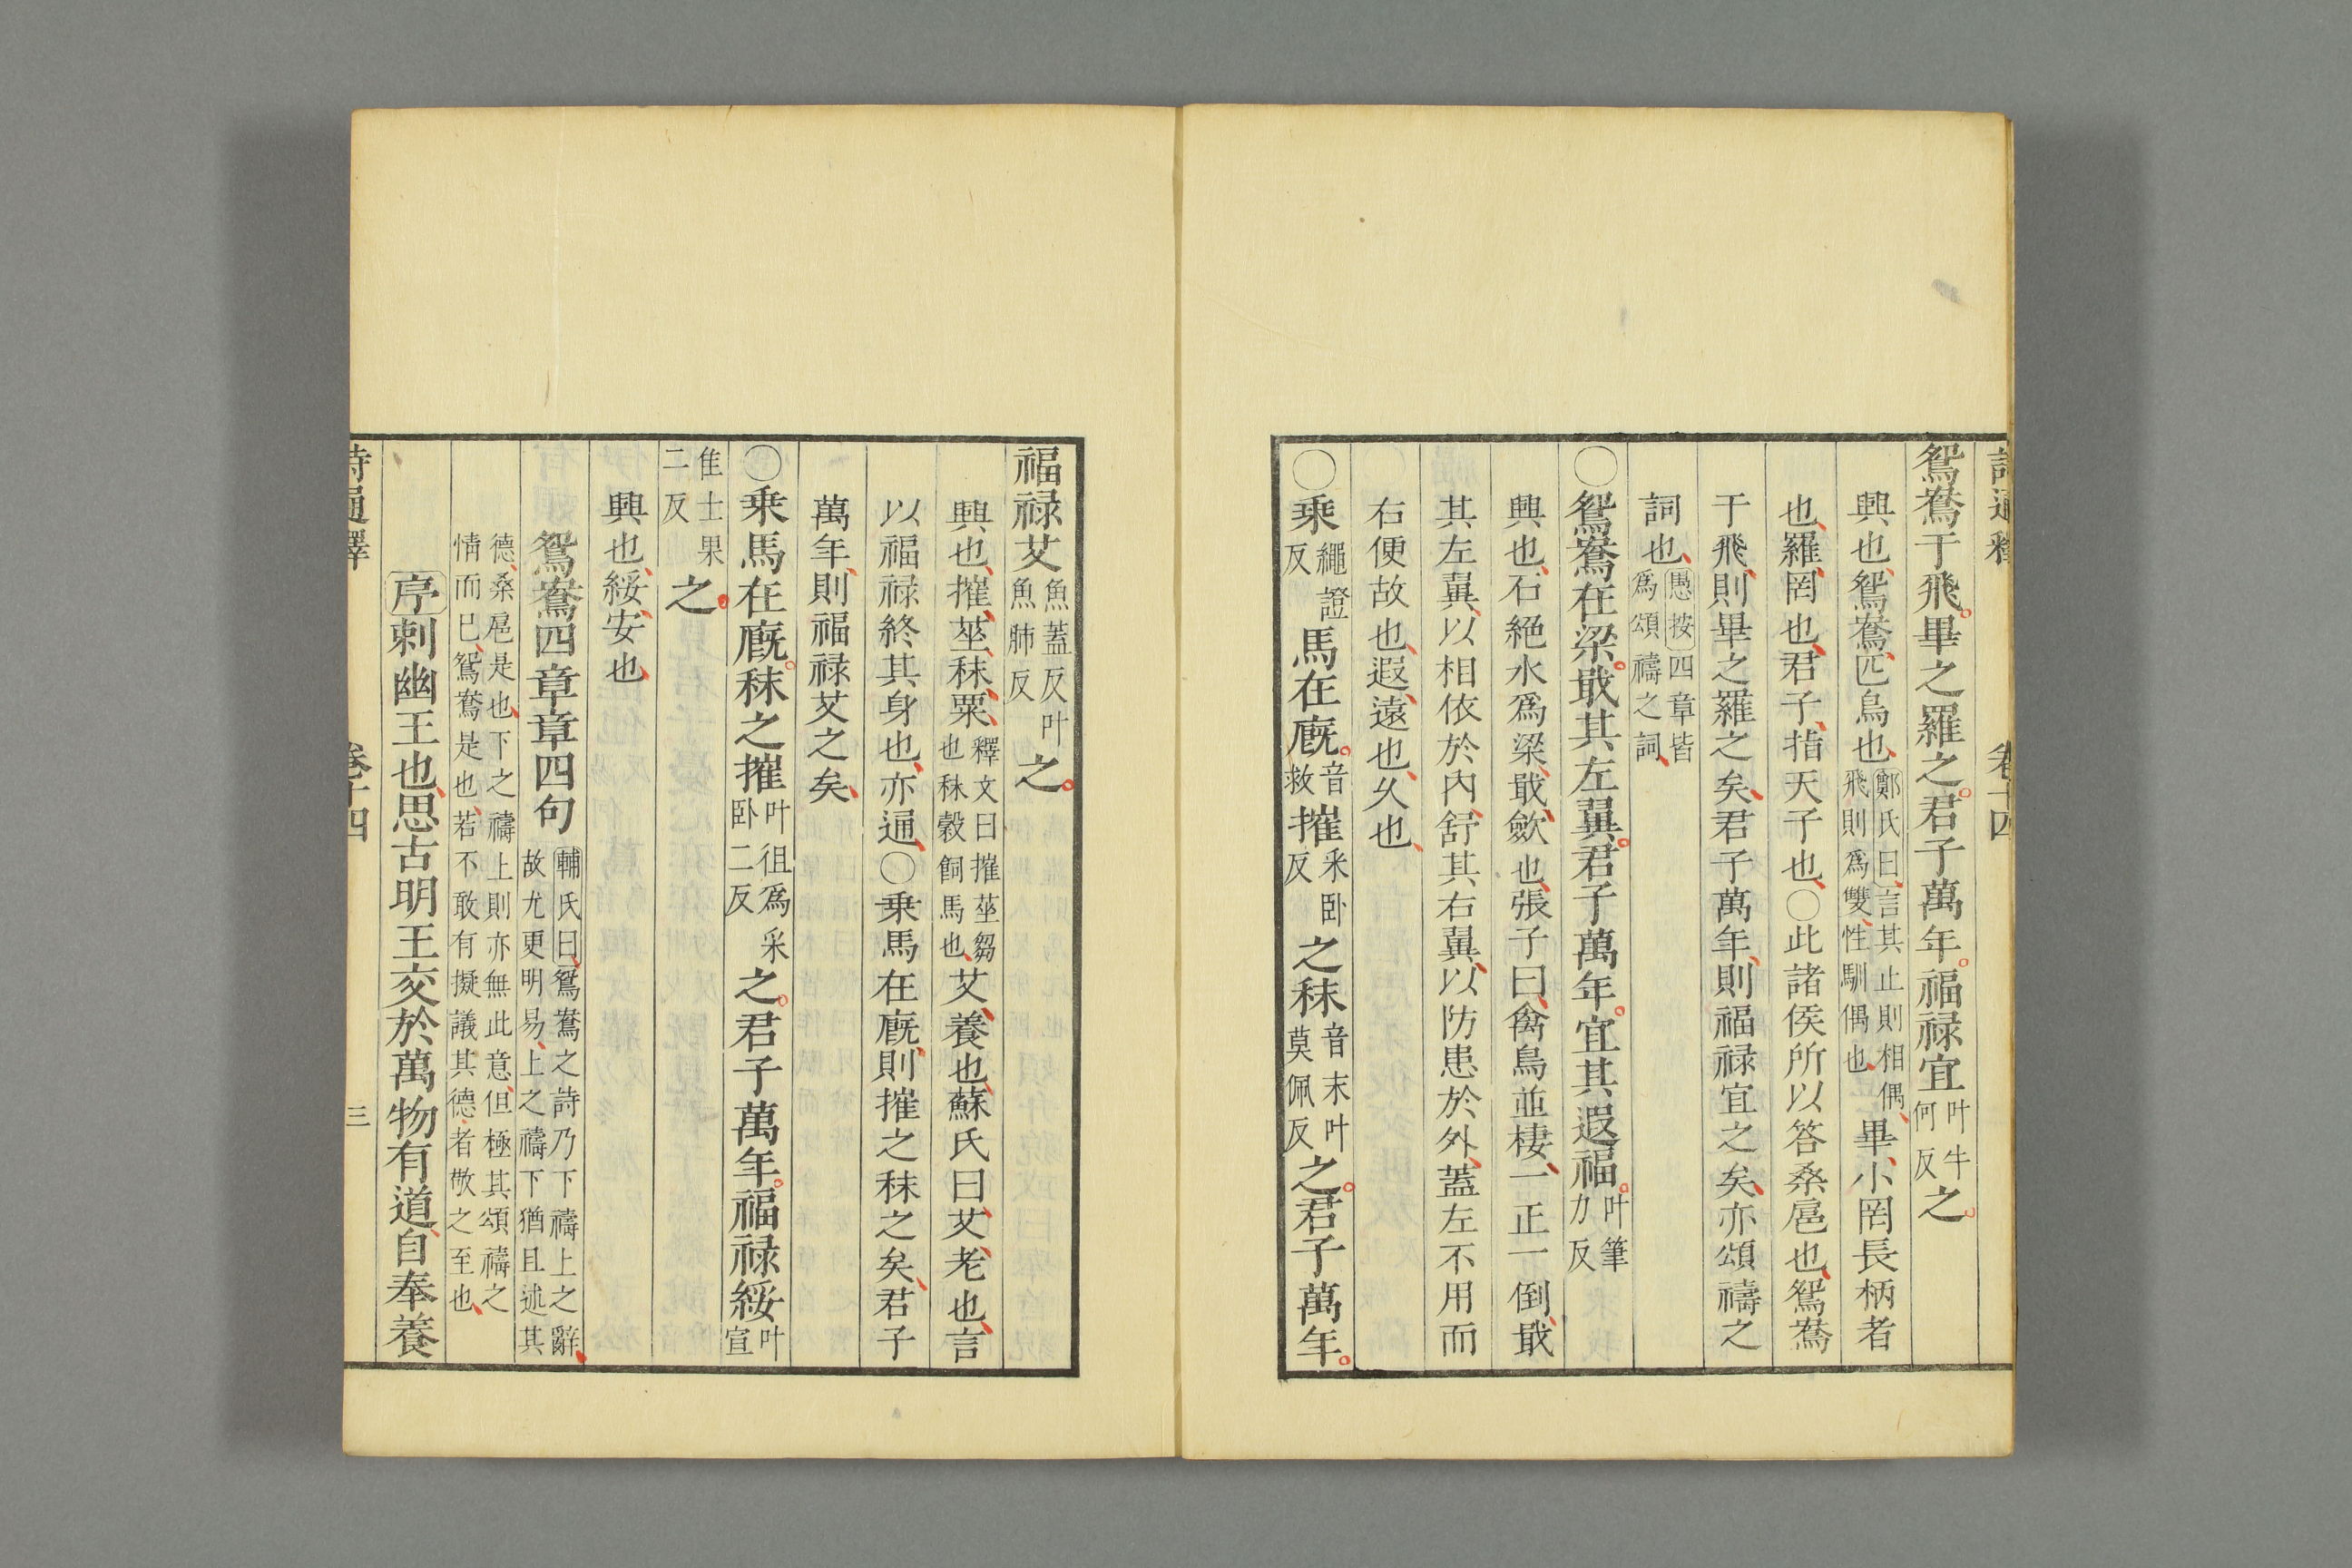 詩通釋 卷十四
鴛鴦于飛畢之羅之君子萬年福祿宜叶牛何反之
興也鴛鴦匹鳥也鄭氏曰言其止則相偶飛則爲雙性馴偶也畢小罔長柄者
也羅罔也君子指天子也〇此諸侯所以答桑扈也鴛鴦
于飛則畢之羅之矣君子萬年則福祿宜之矣亦頌禱之
詞也愚按四章皆爲頌禱之詞
〇鴛鴦在梁戢其左翼君子萬年宜其遐福叶筆力反
興也石絕水爲梁戢歛也張子曰禽鳥並棲一正一倒戢
其左翼以相依於內舒其右翼以防患於外蓋左不用而
右便故也遐遠也久也
〇乘繩證反馬在廐音救摧采卧反之秣音末叶莫佩反之君子萬年
福祿艾魚蓋反叶魚肺反之
興也摧莝秣粟釋文曰摧莝芻也秣穀飼馬也艾養也蘇氏曰艾老也言
以福祿終其身也亦通〇乘馬在廐則摧之秣之矣君子
萬年則福祿艾之矣
〇乘馬在廐秣之摧叶徂爲采卧二反之君子萬年福祿綏叶宣
隹士果二反之
興也綏安也
鴛鴦四章章四句輔氏曰鴛鴦之詩乃下禱上之辭故尤更明易上之禱下猶且述其
德桑扈是也下之禱上則亦無此意但極其頌禱之情而已鴛鴦是也若不敢有擬議其德者敬之至也
序刺幽王也思古明王交於萬物有道自奉養
詩通釋 卷十四 三